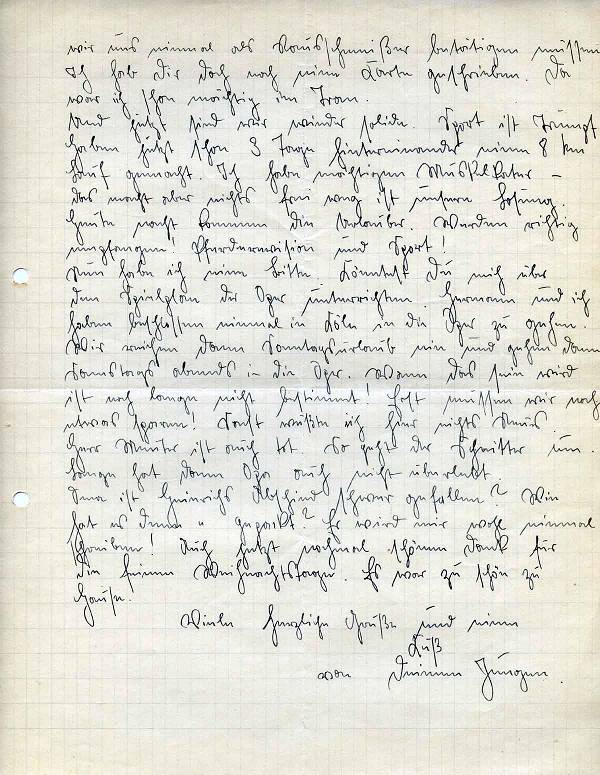 wir uns einmal als Rausschmeißer betätigen müssen
Ich hab Dir doch noch eine Karte geschrieben. Da
war ich schon mächtig im Tran.
Und jetzt sind wir wieder solide. Sport ist Trumpf
haben jetzt schon 3 Tage hintereinander einen 8 km
Lauf gemacht. Ich habe mächtigen Muskelkater –
das macht aber nichts frei weg ist unsere Losung.
Heute nacht kommen die Urlauber. Werden richtig
empfangen! Pferderevision und Sport!
Nun habe ich eine Bitte. Könntest Du mich über
den Spielplan der Oper unterrichten. Hermann und ich
haben beschlossen einmal in Köln in die Oper zu gehen.
Wir reichen dann Sonntagsurlaub ein und gehen dann
Samstags abends in die Oper. Wann das sein wird
ist noch lange nicht bestimmt! Erst müssen wir noch
etwas sparen! Sonst wüßte ich hier nichts Neues.
Herr Münter ist auch tot. So geht der Schnitter um.
Lange hat dann Opa auch nicht überlebt
Tina ist Heinrichs Abschied schwer gefallen? Wie
hat es Tina gepackt? Er wird mir wohl einmal
schreiben! Auch jetzt nochmal schönen Dank für
die feinen Weihnachtstage. Es war zu schön zu
Hause.
Viele herzliche Grüße und einen
Kuß
von Deinem Jürgen.